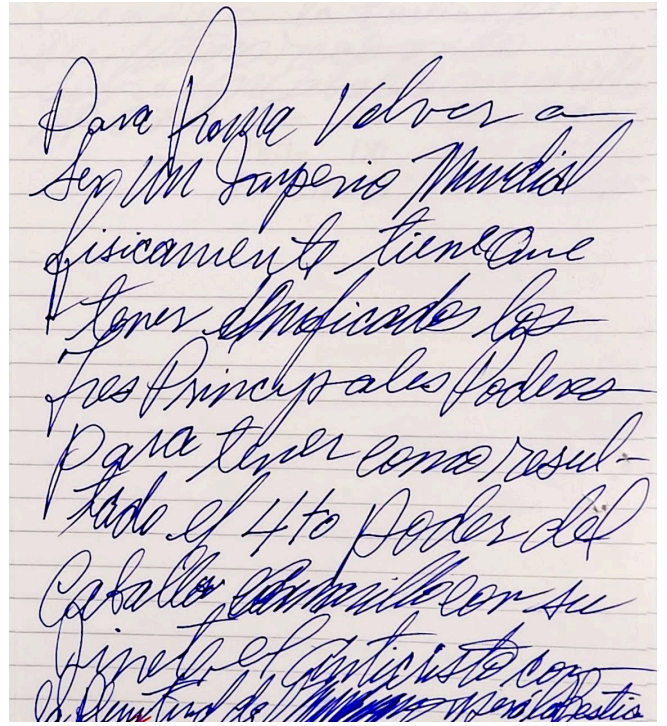 Para Roma Volver a
ser un Imperio Mundial
fisicamente tiene Que
tener Unificados los
Tres Principales Poderes
para tener como resul-
tado el 4to poder del
Caballo amarillo con su
Jinete el anticristo con
la plenitud de